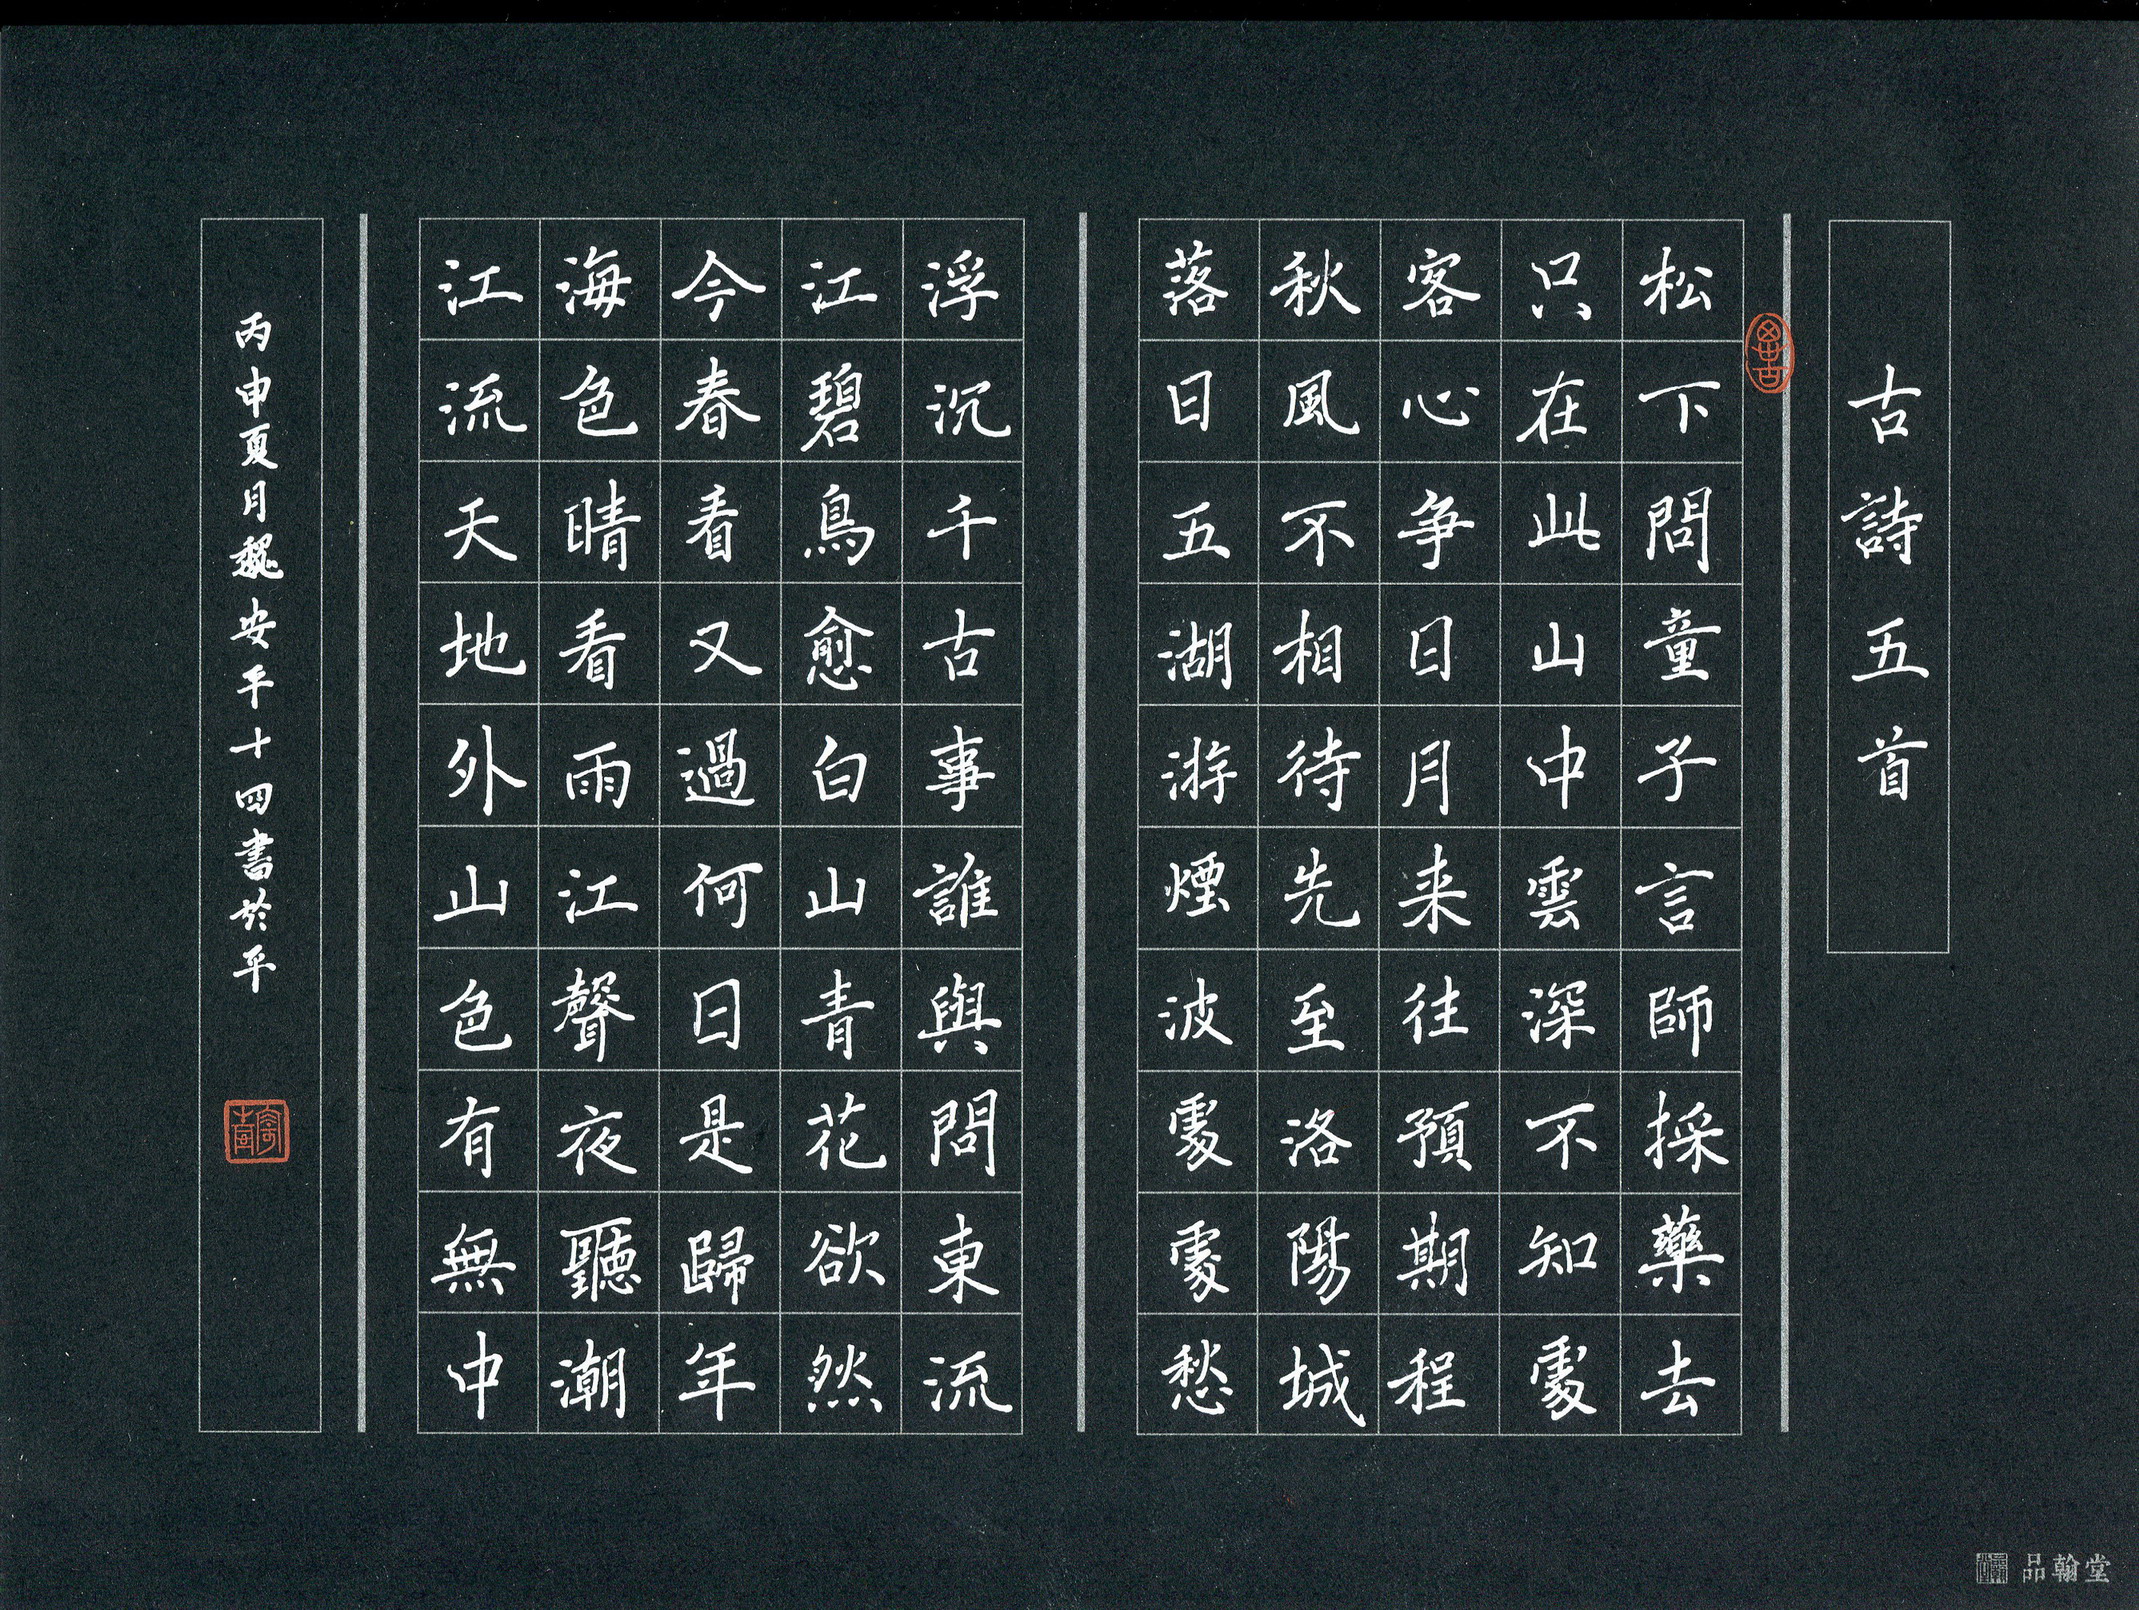 古詩五首
松下問童子言師採藥去
只在此山中雲深不知處
客心争日月来往預期程
秋風不相待先至洛陽城
落日五湖游煙波處處愁
浮沉千古事誰與問東流
江碧鳥愈白山青花欲然
今春看又過何日是歸年
海色晴看雨江聲夜聽潮
江流天地外山色有無中
丙申夏月魏安平十四書於平
品翰堂